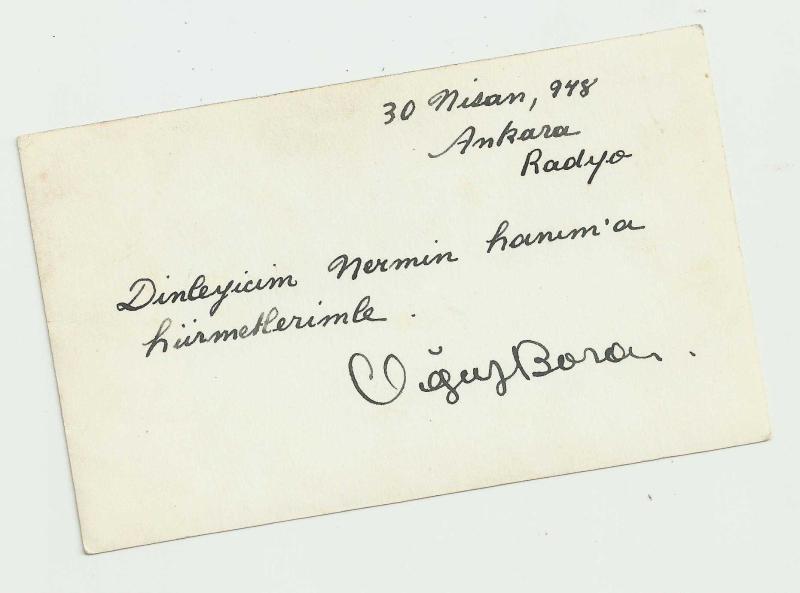 30 Nisan, 948
Ankara
Radyo
Dinleyicim Nermin hanım'a
hürmetlerimle.
Oğuz Boran.